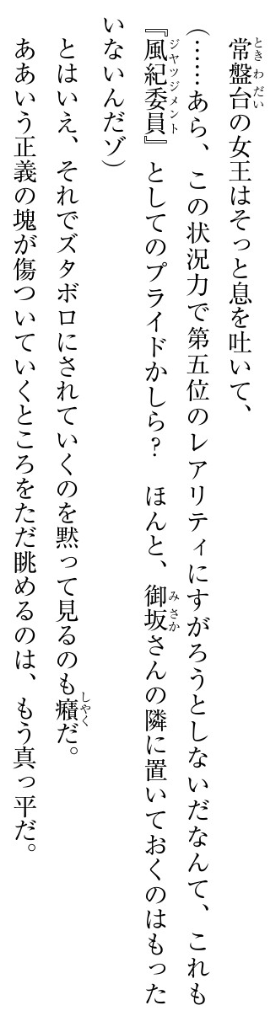 常盤台の女王はそっと息を吐いて、
(……あら、この状況力で第五位のレアリティにすがろうとしないだなんて、これも
『風紀委員』としてのプライドかしら？　ほんと、御坂さんの隣に置いておくのはもった
いないんだゾ)
とはいえ、それでズタボロにされていくのを黙って見るのも癪だ。
ああいう正義の塊が傷ついていくところをただ眺めるのは、もう真っ平だ。
ときわだい
ジャッジメント
みさか
しやく